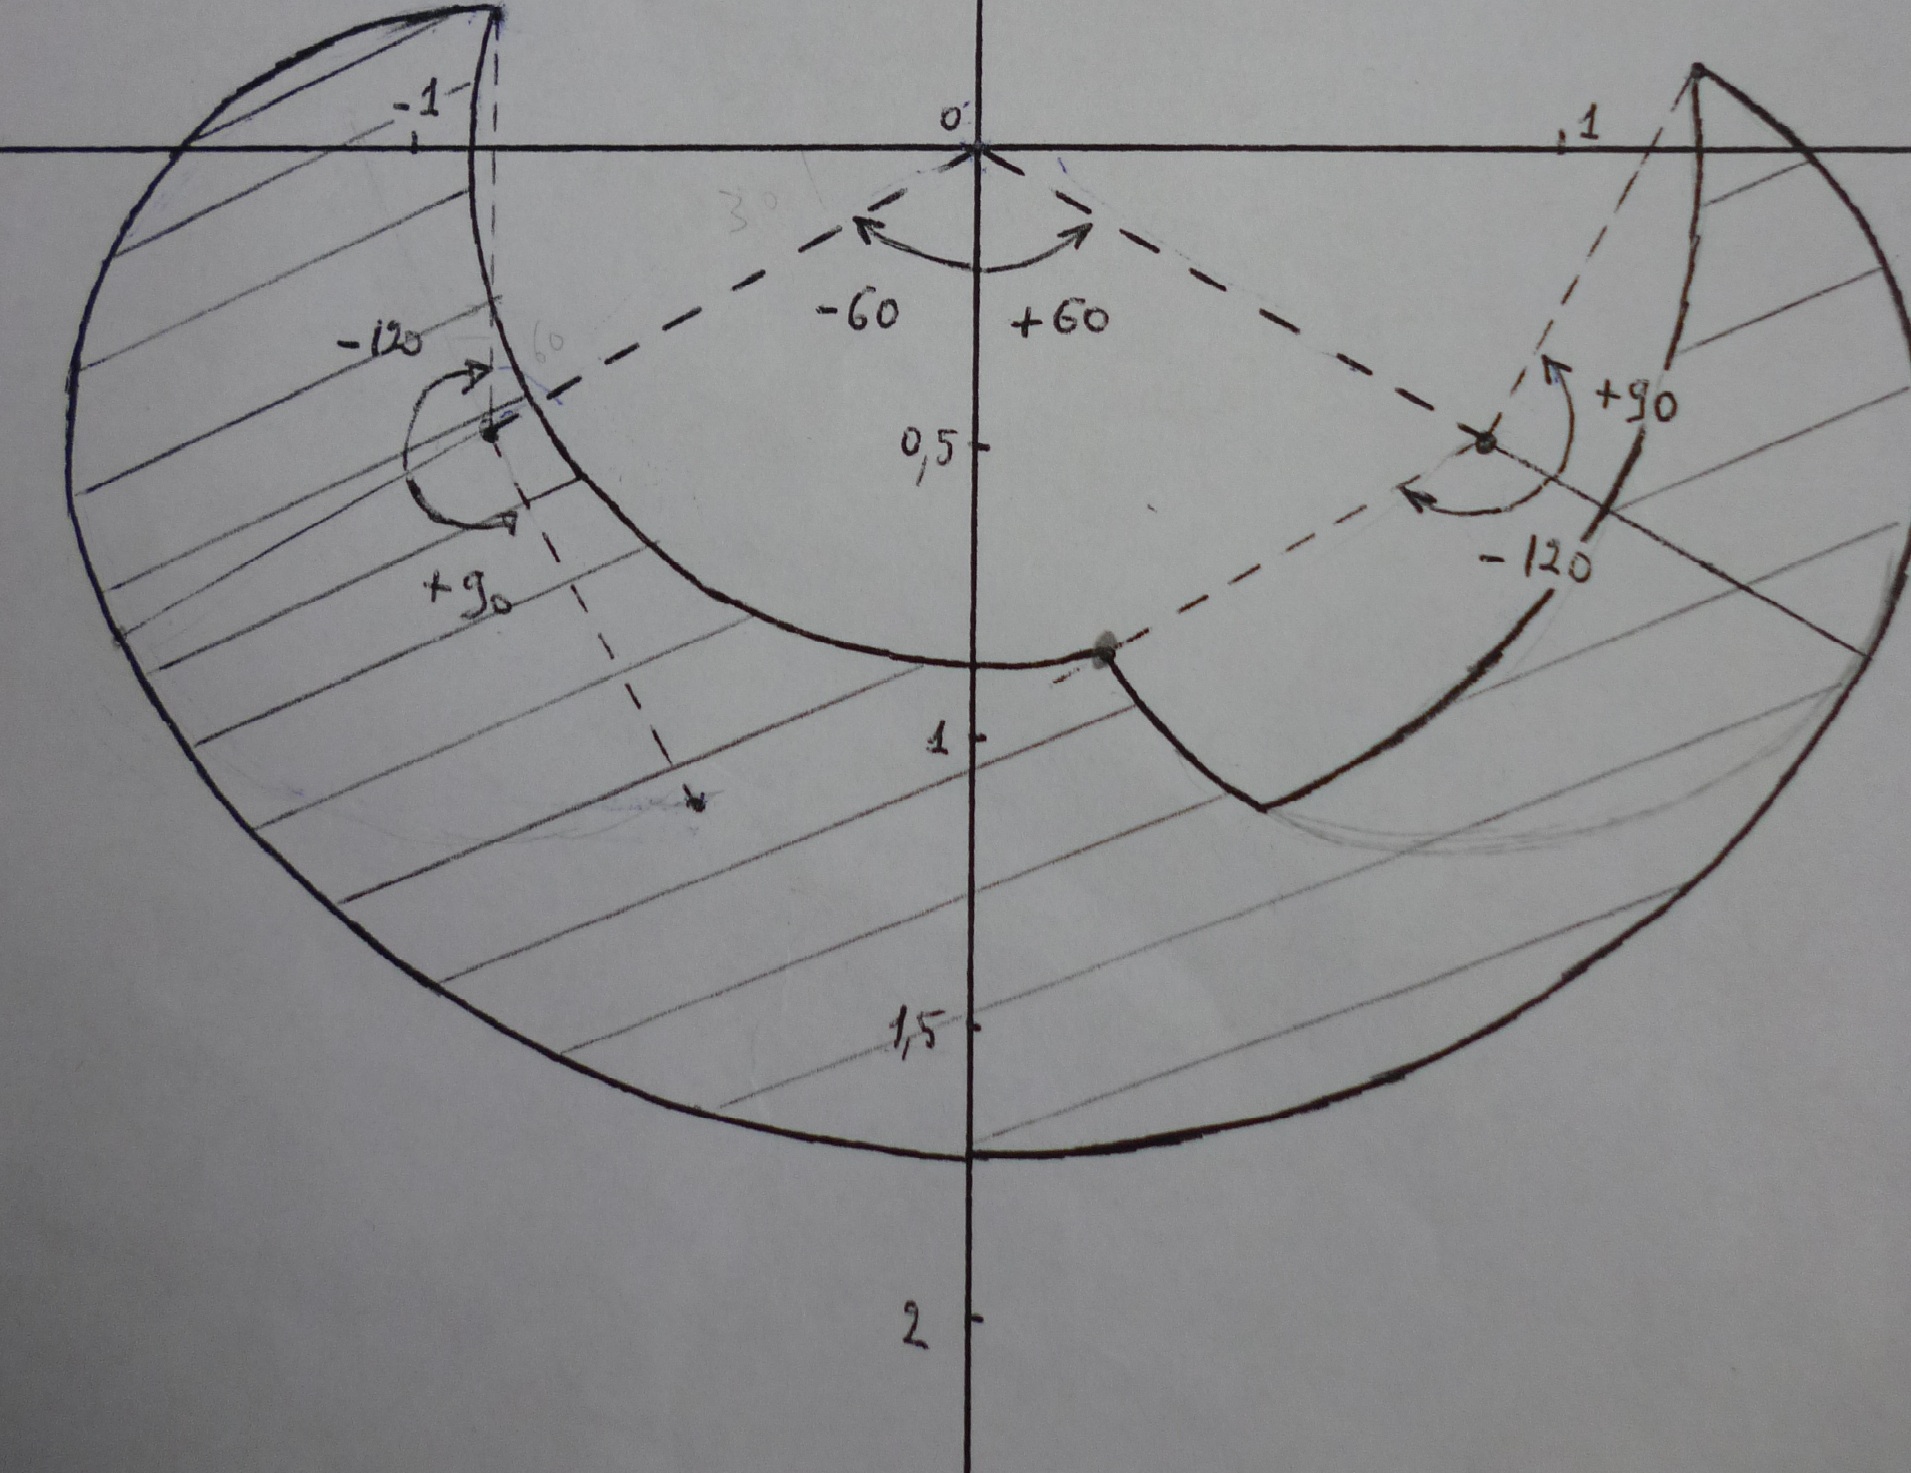 -1
0
1
30
-60
+60
-120
60
+90
+90
0,5
-120
1
1,5
2